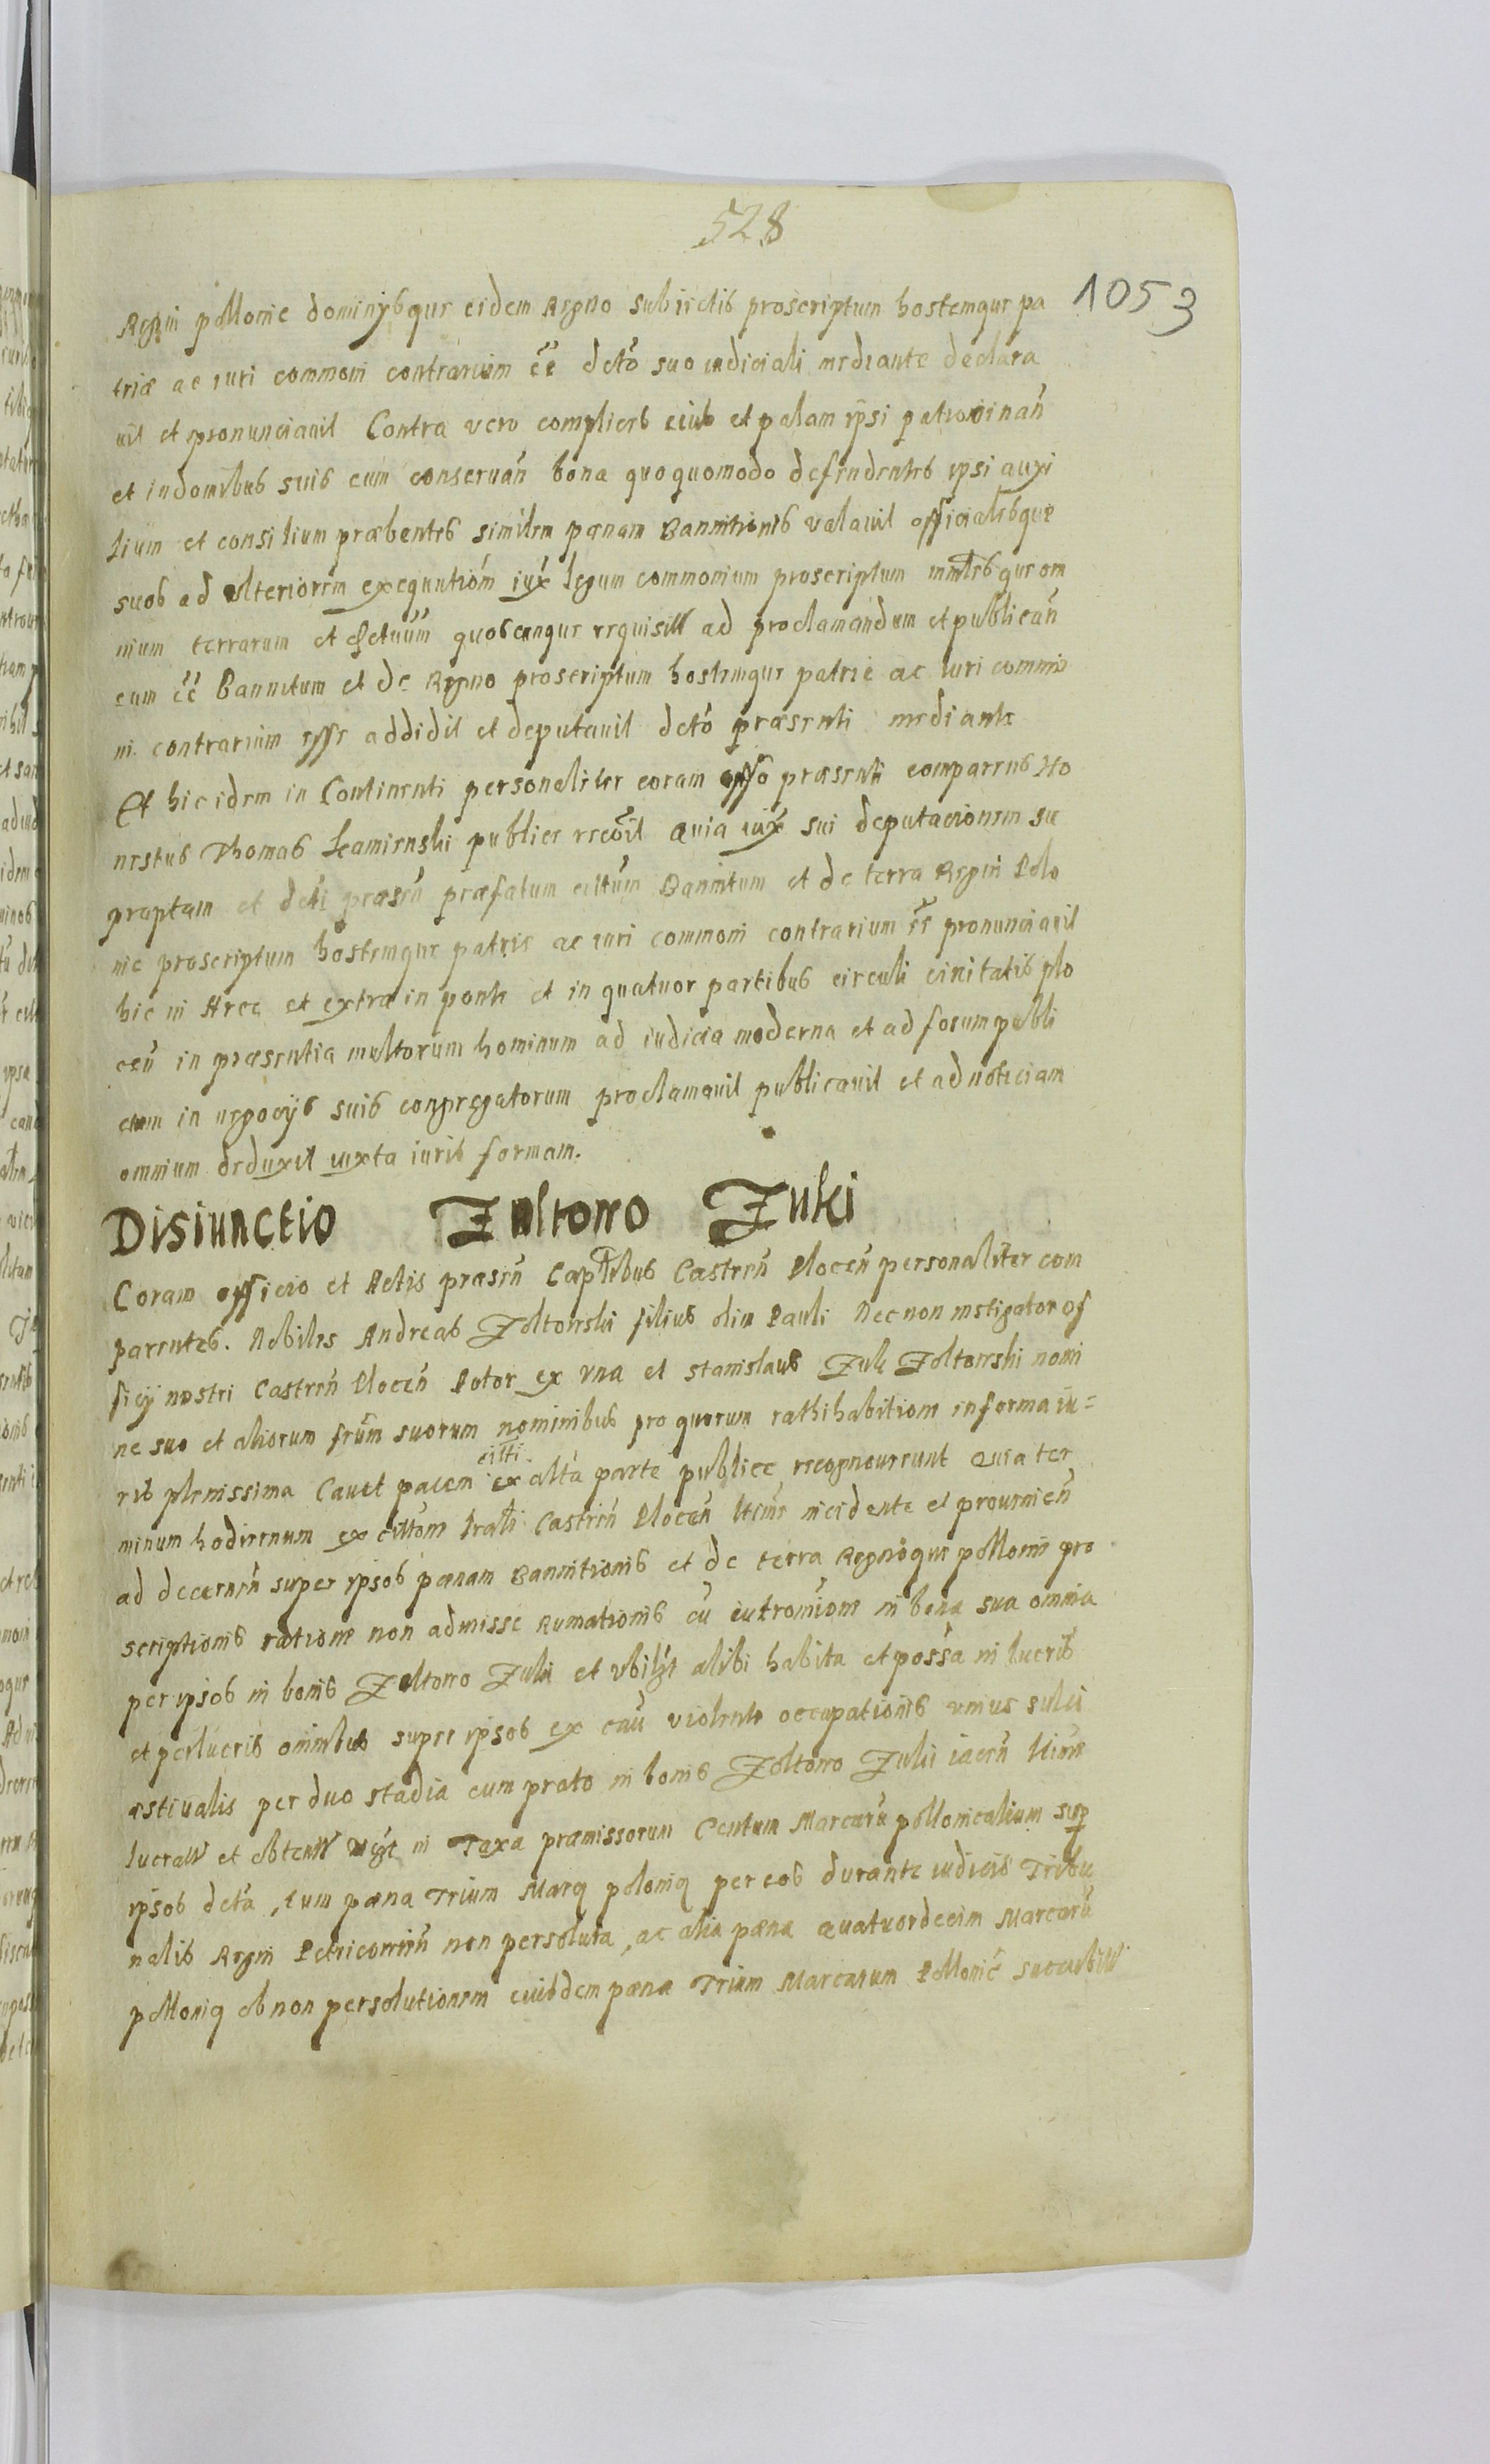 528
1053
Regni pollonie dominijsque eidem Regno subiectis proscriptum hostemque pa
triæ ac iuri commoni contrarium eē dctō suo iudiciali mediante declara
uit et pronunciauit Contra vero complices eius et palam ipsi patrocinan̄
et indomibus suis eum conseruan̄ bona quoquomodo defendentes ipsi auxi
lium et consilium præbentes similem pænam Bannitionis valauit officialesque
suos ad vlteriorem exequutiōm iux̄ legum commonium proscriptum mn̄trosque om
nium terrarum et dctuūm quoscunque requisitt ad proclamandum et publican̄
eum eē Bannitum et de Regno proscriptum hostemque patrie ac iuri commo
ni contrarium esse addidit et deputauit dctō præsenti mediante
Et hic idem in Continenti personaliter coram offō præsenti comparens Ho
nestus Thomas Kamienski publice recōit Quia iux̄ sui deputacionem su
sceptam et dcti præsen̄ præfatum cittum Bannitum et de terra Regni Polo
nie proscriptum hostemque patrie ac iuri commoni contrarium eē pronunciauit
hic in Arce et extra in ponte et in quatuor partibus circuli ciuitatis plo
cen̄ in præsentia multorum hominum ad iudicia moderna et ad forum publi
cum in negocijs suis congregatorum proclamauit publicauit et ad noticiam
omnium deduxit iuxta iuris formam.
Disiunctio Zoltowo Zuki
Coram officio et Actis præsen̄ Captlibus Castren̄ Plocen̄ personaliter com
parentes. Nobiles Andreas Zoltowski filius olim Pauli Nec non instigator of
ficij nostri Castren̄ Plocen̄ Potor ex vna et Stanislaus Zuk Zoltowski nomi
ne suo et aliorum frūm suorum nominibus pro quorum rathihabitione in forma iu=
ris plenissima Cauet pacen citti ex altā parte publice recognouerunt Quia ter
minum hodiernum ex cittōne lrali Castren̄ Plocen̄ ltime incidente et prouenien̄
ad decernen̄ super ipsos pænam Bannitionis et de terra Regnoque pollonie pro
scriptionis ratione non admisse Rumationis cū intromione in bona sua omnia
per ipsos in bonis Zoltowo Zuki et vbilz̄t alibi habita et possā in lucris
et perlucris omnibus super ipsos ex caū violente occupationis vnius sulci
æstiualis per duo stadia cum prato in bonis Zoltowo Zuki iacen̄ ltime
lucratt et obtentt in Taxa præmissorum Centum Marcarū pollonicalium sup
ipsos dctā, cum pæna Trium Marq poloniq per eos durante iudicis Tribu
nalis Regni Petricouien̄ non persoluta, ac alia pæna Quatuordecim Marcarū
polloniq ob non persolutionem eiusdem pæna Trium Marcarum Polloniē succubitt